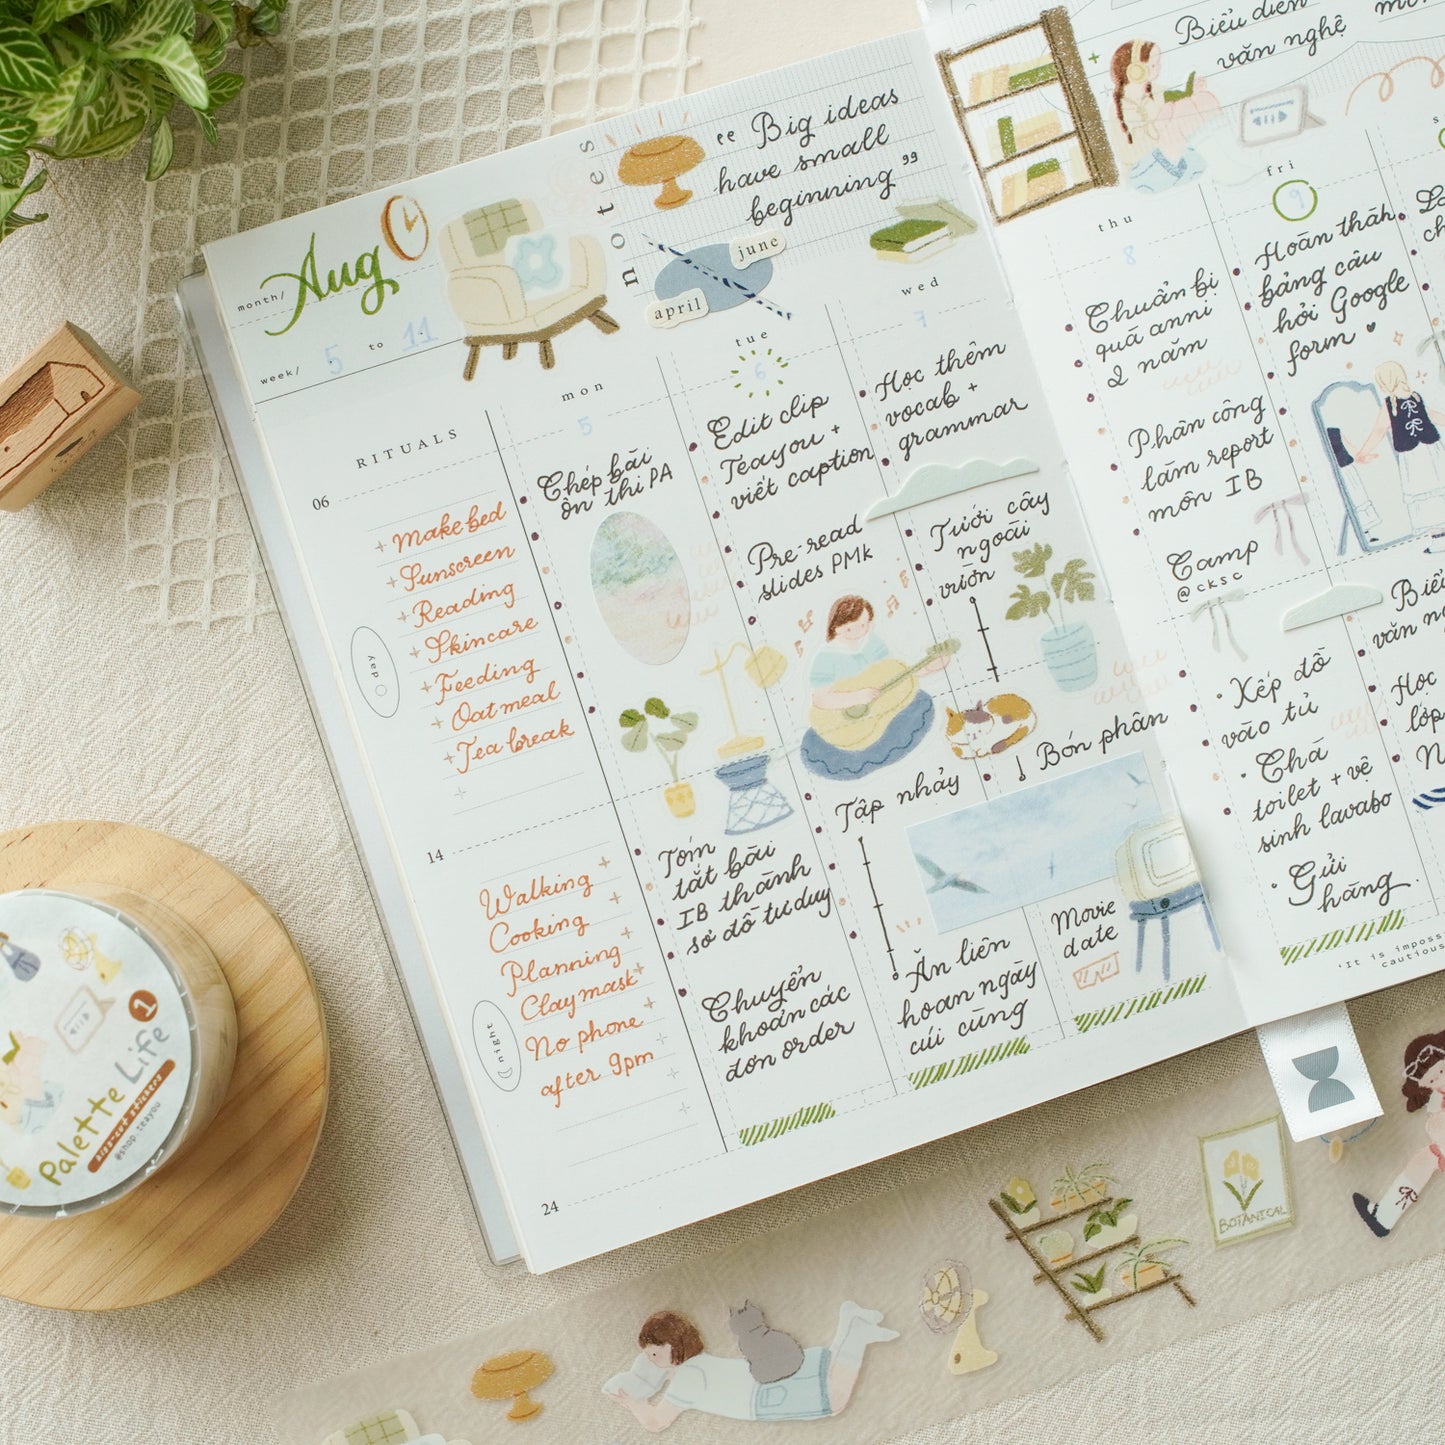 notes
“ Big ideas
have small
beginning ”
june
april
month/ Aug
week/ 5 to 11
RITUALS
06
+ Make bed
+ Sunscreen
+ Reading
+ Skincare
+ Feeding
+ Oatmeal
+ Tea break
day
14
Walking
Cooking
Planning
Clay mask
No phone
after 9pm
night
24
mon
5
Chép bài
ôn thi PA
Tóm
tắt bài
IB thành
sơ đồ tư duy
Chuyển
khoản các
đơn order
tue
6
Edit clip
Teayou +
viết caption
Pre-read
slides PMk
Tập nhảy
Ăn liên
hoan ngày
cúi cùng
wed
7
Học thêm
vocab +
grammar
Tưới cây
ngoài
vườn
Bón phân
Movie
date
+ Biểu diễn
văn nghệ
thu
8
Chuẩn bị
quà anni
2 năm
Phân công
làm report
môn IB
Camp
@cksc
• Xếp đồ
vào tủ
• Chà
toilet + vệ
sinh lavabo
• Gửi
hàng.
fri
9
Hoàn thành
bảng câu
hỏi Google
form
văn
Học
lớp
"It is imposs
cautious
Palette Life 1
kiss-cut stickers
@shop.teayou
BOTANICAL